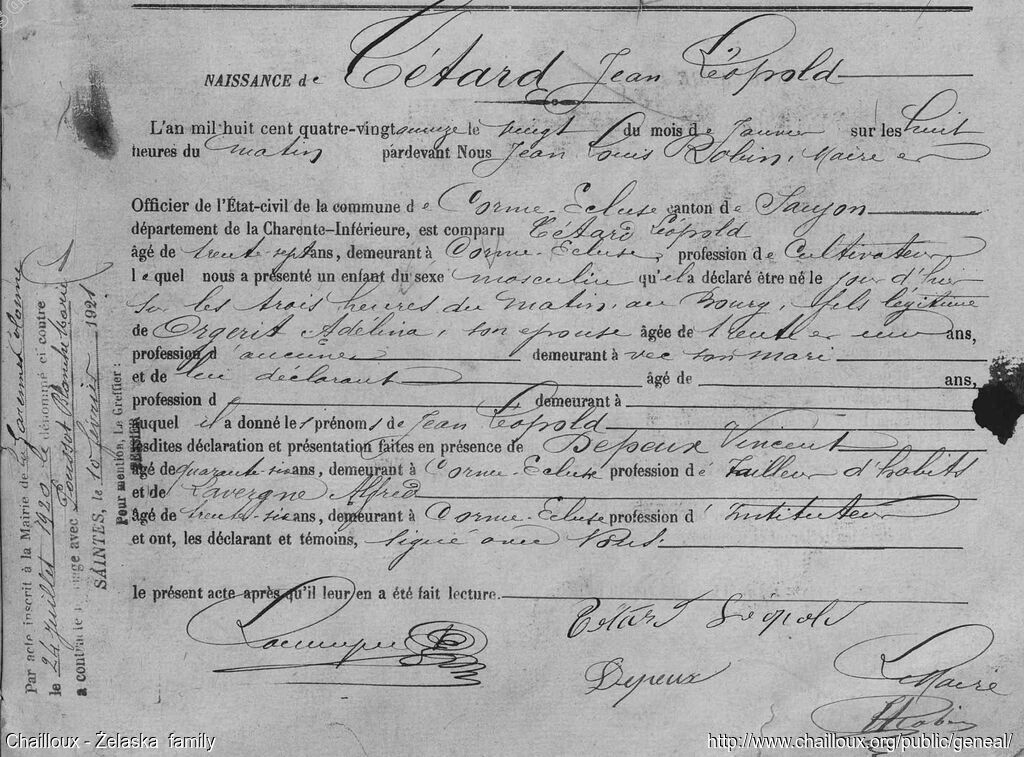 NAISSANCE de Tétard Jean Léopold
L'an mil huit cent quatre-vingt onze le vingt du mois de Janvier sur les huit
heures du matin pardevant Nous Jean Louis Robin, Maire et
Officier de l'État-civil de la commune de Corme-Ecluse canton de Saujon
département de la Charente-Inférieure, est comparu Tétard Léopold
âgé de trente-sept ans, demeurant à Corme-Ecluse, profession de Cultivateur
lequel nous a présenté un enfant du sexe masculin qu'il a déclaré être né le jour d'hier
sur les trois heures du matin, au Bourg, fils légitime
de Orgerit Adelina, son épouse âgée de trente et un ans,
profession d'aucune demeurant avec son mari
et de lui déclarant âgé de ans,
profession d demeurant à
auquel il a donné les prénoms de Jean Léopold
lesdites déclaration et présentation faites en présence de Depeux Vincent
âgé de quarante-six ans, demeurant à Corme-Ecluse profession de tailleur d'habits
et de Lavergne Alfred
âgé de trente-six ans, demeurant à Corme-Ecluse profession d'Instituteur
et ont, les déclarant et témoins, signé avec Nous.
le présent acte après qu'il leur en a été fait lecture.
Tétard Léopold
Depeux
Le Maire
Robin
Par acte inscrit à la Mairie de la Garenne Colombe
le 24 juillet 1920 le dénommé ci contre
a contracté mariage avec Blanche Marie
SAINTES, le 10 février 1921
Pour mention, Le Greffier :
Chailloux - Želaska family
http://www.chailloux.org/public/geneal/